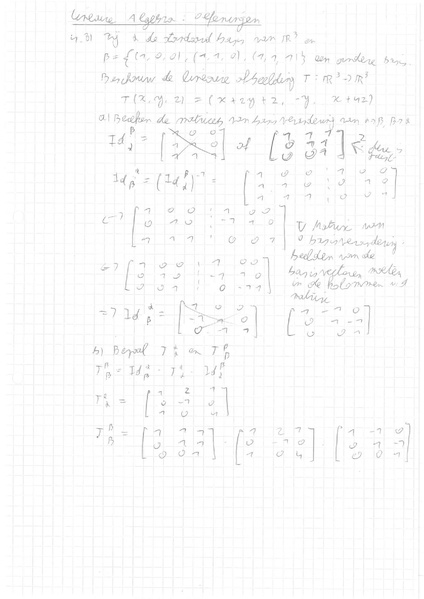 Lineaire Algebra: oefeningen
4.31 Zij α de standaard basis van ℝ³ en
β = {(1, 0, 0), (1, 1, 0), (1, 1, 1)} een andere basis.
Beschouw de lineaire afbeelding T: ℝ³ → ℝ³
T(x, y, z) = (x + 2y + z, -y, x + 4z)
a) Bereken de matrices van basisverandering van α → β, β → α
Id_α^β = [1 0 0; 1 1 0; 1 1 1] of [1 1 1; 0 1 1; 0 0 1]
Id_β^α = (Id_α^β)^-1 = [1 0 0 : 1 0 0; 1 1 0 : 0 1 0; 1 1 1 : 0 0 1]
[1 0 0 : 1 0 0; 0 1 0 : -1 1 0; 1 1 1 : 0 0 1] Matrix van
basisverandering:
beelden van de
[1 0 0 : 1 0 0; 0 1 0 : -1 1 0; 0 0 1 : 0 -1 1] basisvectoren moeten
in de kolommen
matrix
=> Id_β^α = [1 0 0; -1 1 0; 0 -1 1] [1 -1 0; 0 1 -1; 0 0 1]
b) Bepaal T_α^α en T_β^β
T_β^β = Id_β^α · T_α^α · Id_α^β
T_α^α = [1 2 1; 0 -1 0; 1 0 4]
T_β^β = [1 1 1; 0 1 1; 0 0 1] · [1 2 1; 0 -1 0; 1 0 4] · [1 -1 0; 0 1 -1; 0 0 1]